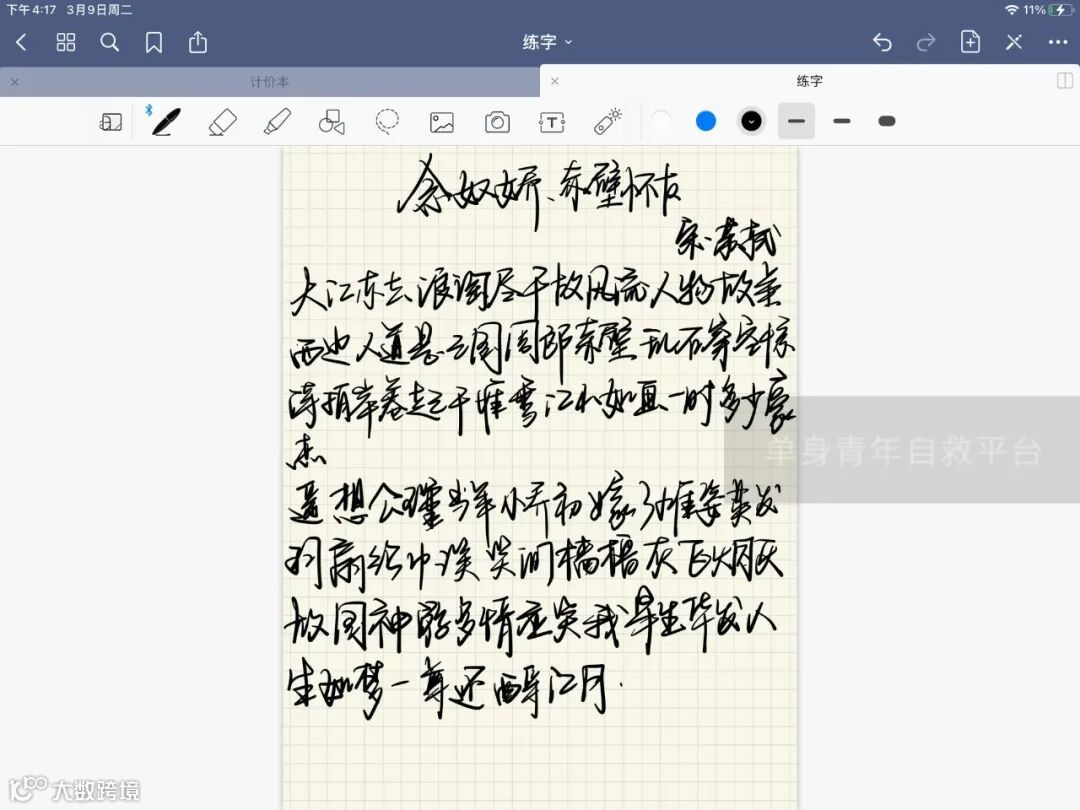 下午4:17 3月9日周二
11%
练字
计价本
练字
念奴娇、赤壁怀古
宋·苏轼
大江东去浪淘尽千故风流人物故垒
西边人道是三国周郎赤壁乱石穿空惊
涛拍岸卷起千堆雪江山如画一时多少豪
杰
遥想公瑾当年小乔初嫁了雄姿英发
羽扇纶巾谈笑间樯橹灰飞烟灭
故国神游多情应笑我早生华发人
生如梦一尊还酹江月.
单身青年自救平台
大数跨境